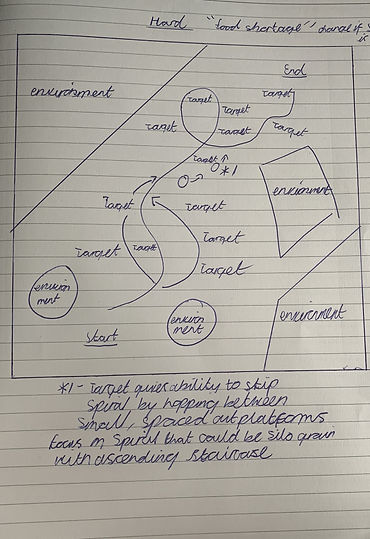 Hard "food shortage"
End
environment
Target
Target
Target
Target
Target
Target
Target
*1
environment
Target
Target
Target
Target
Target
Target
environ
ment
environ
ment
environment
Start
*1 - Target gives ability to skip
Spiral by hopping between
Small, Spaced out platforms
focus on Spiral that could be silo grain
with ascending staircase